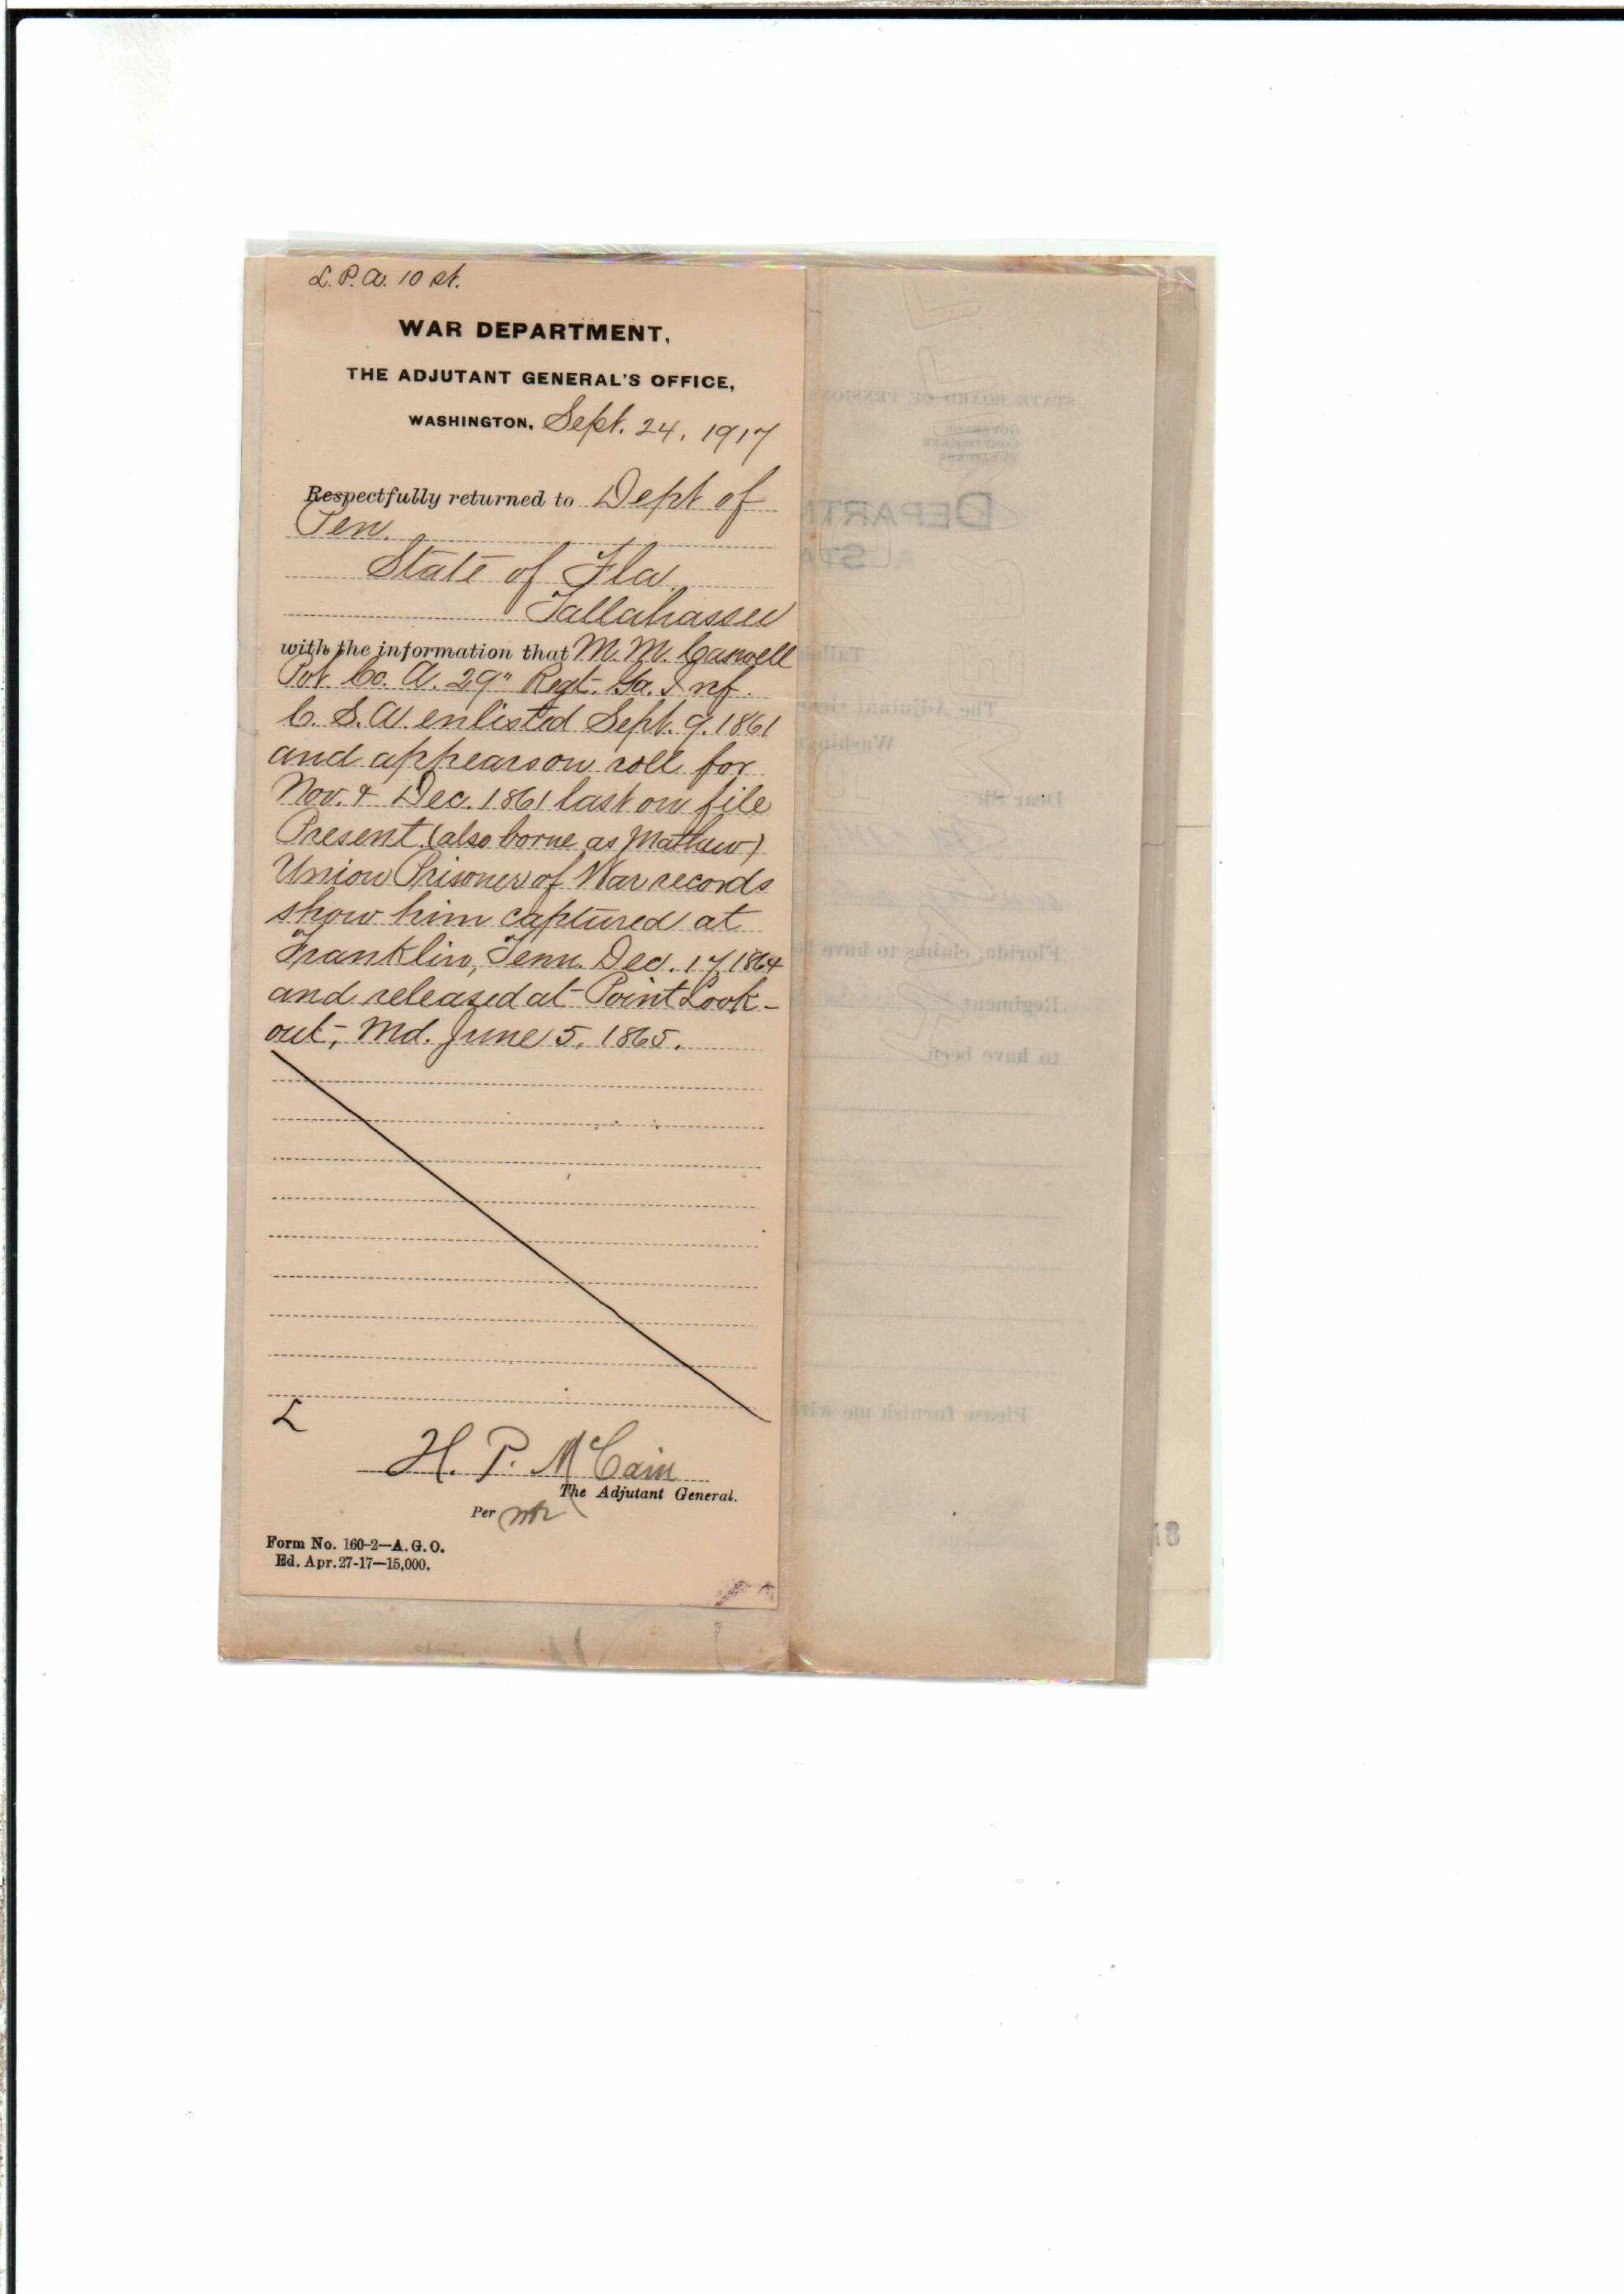 L.P.A. 10 st.
WAR DEPARTMENT,
THE ADJUTANT GENERAL'S OFFICE,
WASHINGTON, Sept. 24, 1917
Respectfully returned to Dept of
Pen.
State of Fla.
Tallahassee
with the information that M. M. Caswell
Pvt. Co. A. 29" Regt. Ga. Inf.
C. S. A. enlisted Sept. 9. 1861
and appears on roll for
Nov. & Dec. 1861 last on file
Present. (also borne as Mathew)
Union Prisoner of War records
show him captured at
Franklin, Tenn. Dec. 17, 1864
and released at Point Look-
out, Md. June 5, 1865.
L
H. P. McCain
The Adjutant General.
Per
Form No. 160-2—A. G. O.
Ed. Apr. 27-17—15,000.
STATE BOARD OF PENSION
GOVERNOR
COMPTROLLER
TREASURER
DEPARTM
STA
Talla
The Adjutant Gene
Washing
Dear Sir:
Florida, claims to have
Regiment
to have been
Please furnish me wit
18